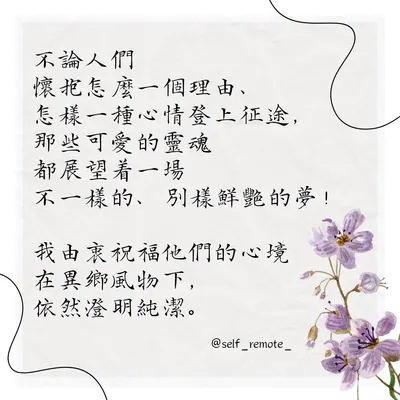 不論人們
懷抱怎麼一個理由、
怎樣一種心情登上征途，
那些可愛的靈魂
都展望着一場
不一樣的、別樣鮮艷的夢！
我由衷祝福他們的心境
在異鄉風物下，
依然澄明純潔。
@self_remote_